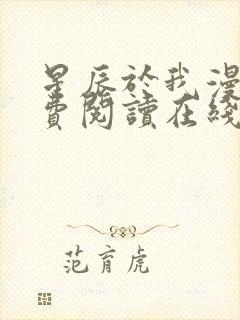 星辰於我漫
費閱讀在綫
范育虎